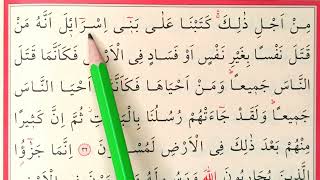 مِنْ اَجْلِ ذٰلِكَ كَتَبْنَا عَلٰى بَنٓى اِسْرَٓائٖلَ اَنَّهُ مَنْ
قَتَلَ نَفْسًا بِغَيْرِ نَفْسٍ اَوْ فَسَادٍ فِى الْاَرْضِ فَكَاَنَّمَا قَتَلَ
النَّاسَ جَمٖيعًا وَمَنْ اَحْيَاهَا فَكَاَنَّمَٓا اَحْيَا النَّاسَ
جَمٖيعًا وَلَقَدْ جَٓاءَتْهُمْ رُسُلُنَا ثُمَّ اِنَّ كَثٖيرًا
مِنْهُمْ بَعْدَ ذٰلِكَ فِى الْاَرْضِ ٣٢ اِنَّمَا جَزٰٓؤُا
الَّذٖينَ يُحَارِبُونَ اللّٰهَ